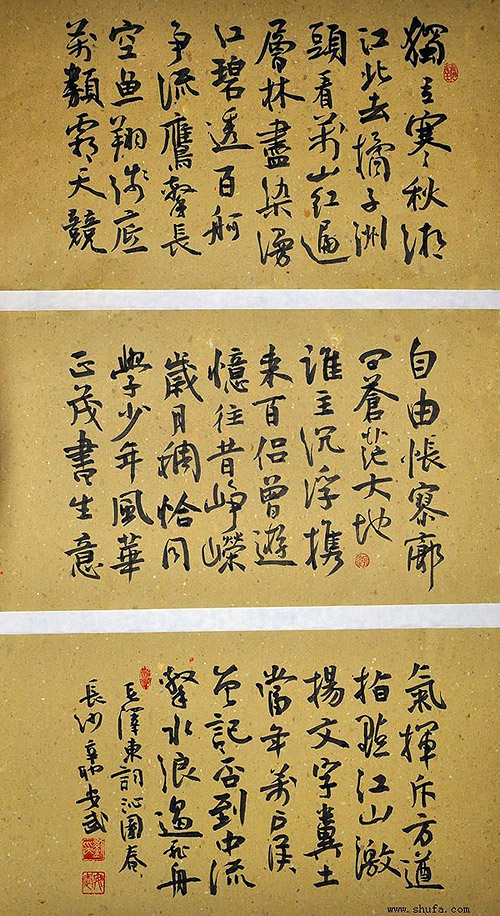 獨立寒秋湘
江北去橘子洲
頭看萬山紅遍
層林盡染漫
江碧透百舸
争流鷹擊長
空魚翔淺底
萬類霜天競
自由悵寥廓
問蒼茫大地
誰主沉浮携
來百侶曾遊
憶往昔崢嶸
歲月稠恰同
學少年風華
正茂書生意
氣揮斥方遒
指點江山激
揚文字糞土
當年萬户侯
曾記否到中流
擊水浪遏飛舟
毛澤東詞沁園春
長沙
www.shufa.com